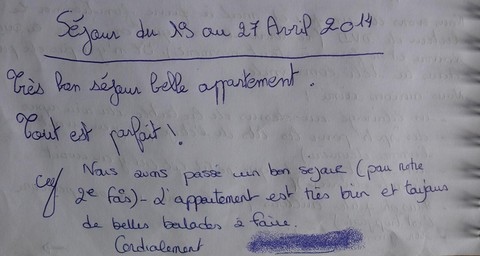 Séjour du 19 au 27 Avril 2014
Très bon séjour belle appartement.
Tout est parfait !
Nous avons passé un bon sejour (pour notre
2e fois) - L'appartement est très bien et toujours
de belles balades à faire.
Cordialement